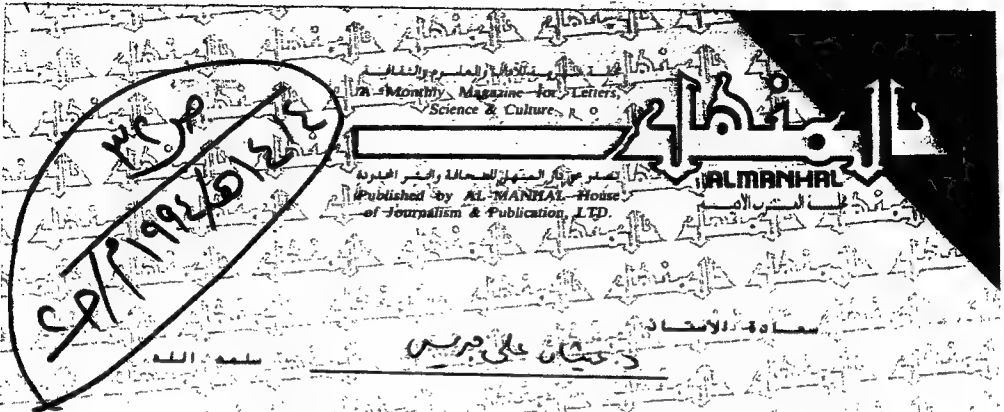 مجلة شهرية للآداب والعلوم والثقافة
A Monthly Magazine for Letters,
Science & Culture
المنهل
ALMANHAL
مجلة العرب الأدبية
تصدر عن دار المنهل للصحافة والنشر المحدودة
Published by AL-MANHAL House
of Journalism & Publication, LTD.
سعادة الأستاذ
د. غيثان علي جريس
سلمه الله